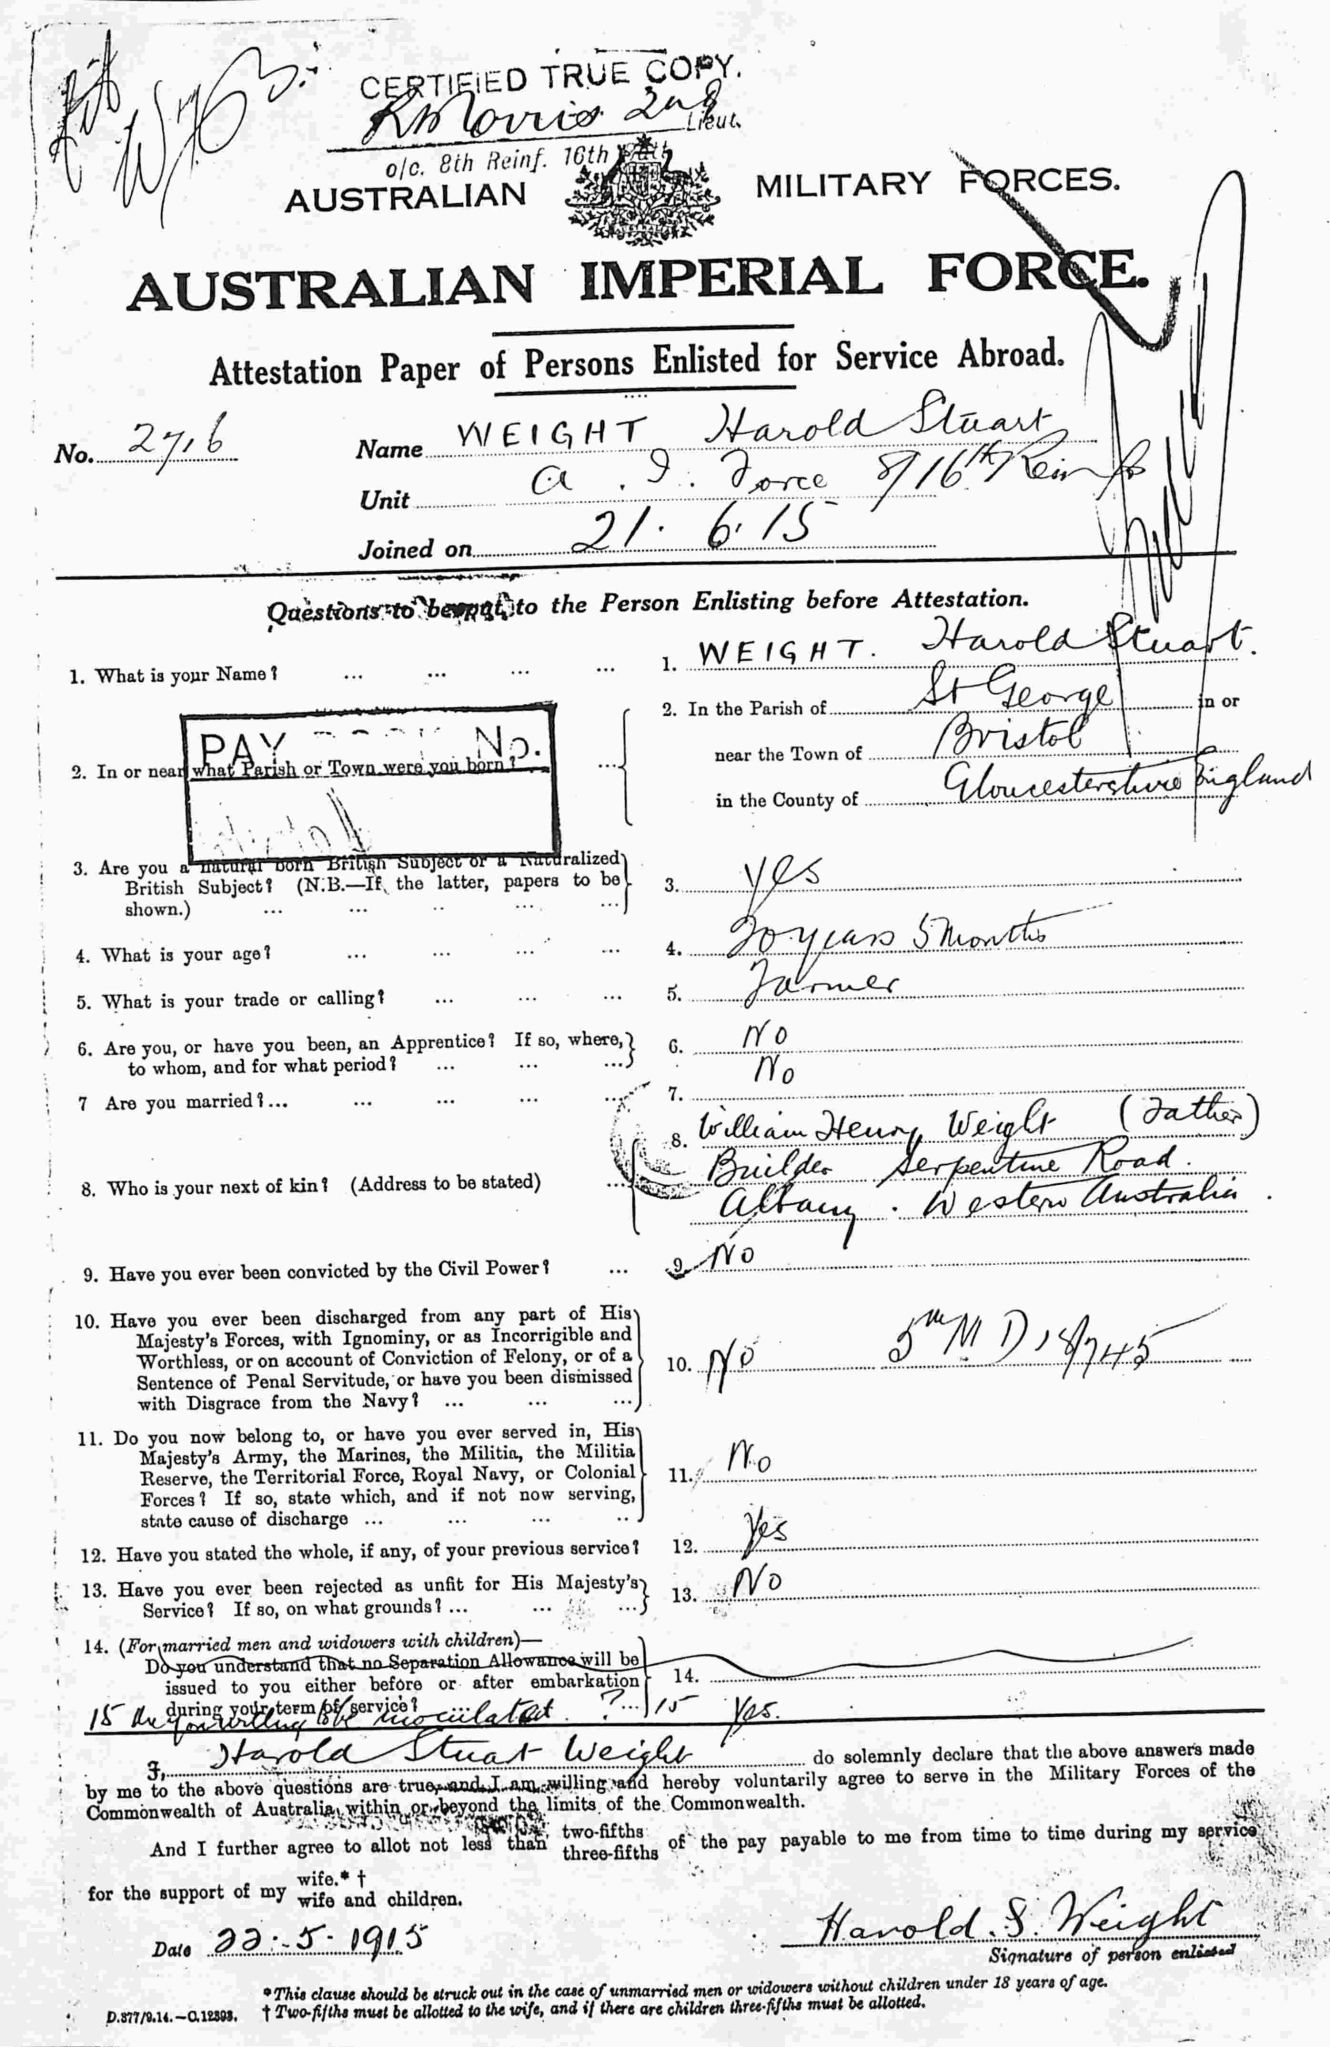 CERTIFIED TRUE COPY.
R Morris 2nd Lieut.
o/c. 8th Reinf. 16th Batt
AUSTRALIAN MILITARY FORCES.
AUSTRALIAN IMPERIAL FORCE.
Attestation Paper of Persons Enlisted for Service Abroad.
No. 2716 Name WEIGHT Harold Stuart
Unit A. I. Force 8/16th Reinfs
Joined on 21. 6. 15
Questions to be put to the Person Enlisting before Attestation.
1. What is your Name? ... ... ... ... 1. WEIGHT. Harold Stuart.
2. In or near what Parish or Town were you born? ... 2. In the Parish of St George in or
near the Town of Bristol
in the County of Gloucestershire England
PAY No.
3. Are you a natural born British Subject or a Naturalized
British Subject? (N.B.—If the latter, papers to be
shown.) ... ... ... ... ... 3. Yes
4. What is your age? ... ... ... ... 4. 20 years 5 Months
5. What is your trade or calling? ... ... ... 5. Farmer
6. Are you, or have you been, an Apprentice? If so, where,
to whom, and for what period? ... ... ... 6. No
7 Are you married? ... ... ... ... ... 7. No
8. Who is your next of kin? (Address to be stated) ... 8. William Henry Weight (Father)
Builder Serpentine Road.
Albany. Western Australia.
9. Have you ever been convicted by the Civil Power? ... 9. No
10. Have you ever been discharged from any part of His
Majesty's Forces, with Ignominy, or as Incorrigible and
Worthless, or on account of Conviction of Felony, or of a
Sentence of Penal Servitude, or have you been dismissed
with Disgrace from the Navy? ... ... ... 10. No 5th M D 18/745
11. Do you now belong to, or have you ever served in, His
Majesty's Army, the Marines, the Militia, the Militia
Reserve, the Territorial Force, Royal Navy, or Colonial
Forces? If so, state which, and if not now serving,
state cause of discharge ... ... ... .. 11. No
12. Have you stated the whole, if any, of your previous service? 12. Yes
13. Have you ever been rejected as unfit for His Majesty's
Service? If so, on what grounds? ... ... ... 13. No
14. (For married men and widowers with children)—
Do you understand that no Separation Allowance will be
issued to you either before or after embarkation
during your term of service? ... 14.
15 Are you willing to be inoculated. ? 15 Yes.
I, Harold Stuart Weight do solemnly declare that the above answers made
by me to the above questions are true, and I am willing and hereby voluntarily agree to serve in the Military Forces of the
Commonwealth of Australia within or beyond the limits of the Commonwealth.
And I further agree to allot not less than two-fifths three-fifths of the pay payable to me from time to time during my service
for the support of my wife.* † wife and children.
Date 22. 5. 1915 Harold. S. Weight
Signature of person enlisted
*This clause should be struck out in the case of unmarried men or widowers without children under 18 years of age.
D.377/9.14.—C.12393. † Two-fifths must be allotted to the wife, and if there are children three-fifths must be allotted.